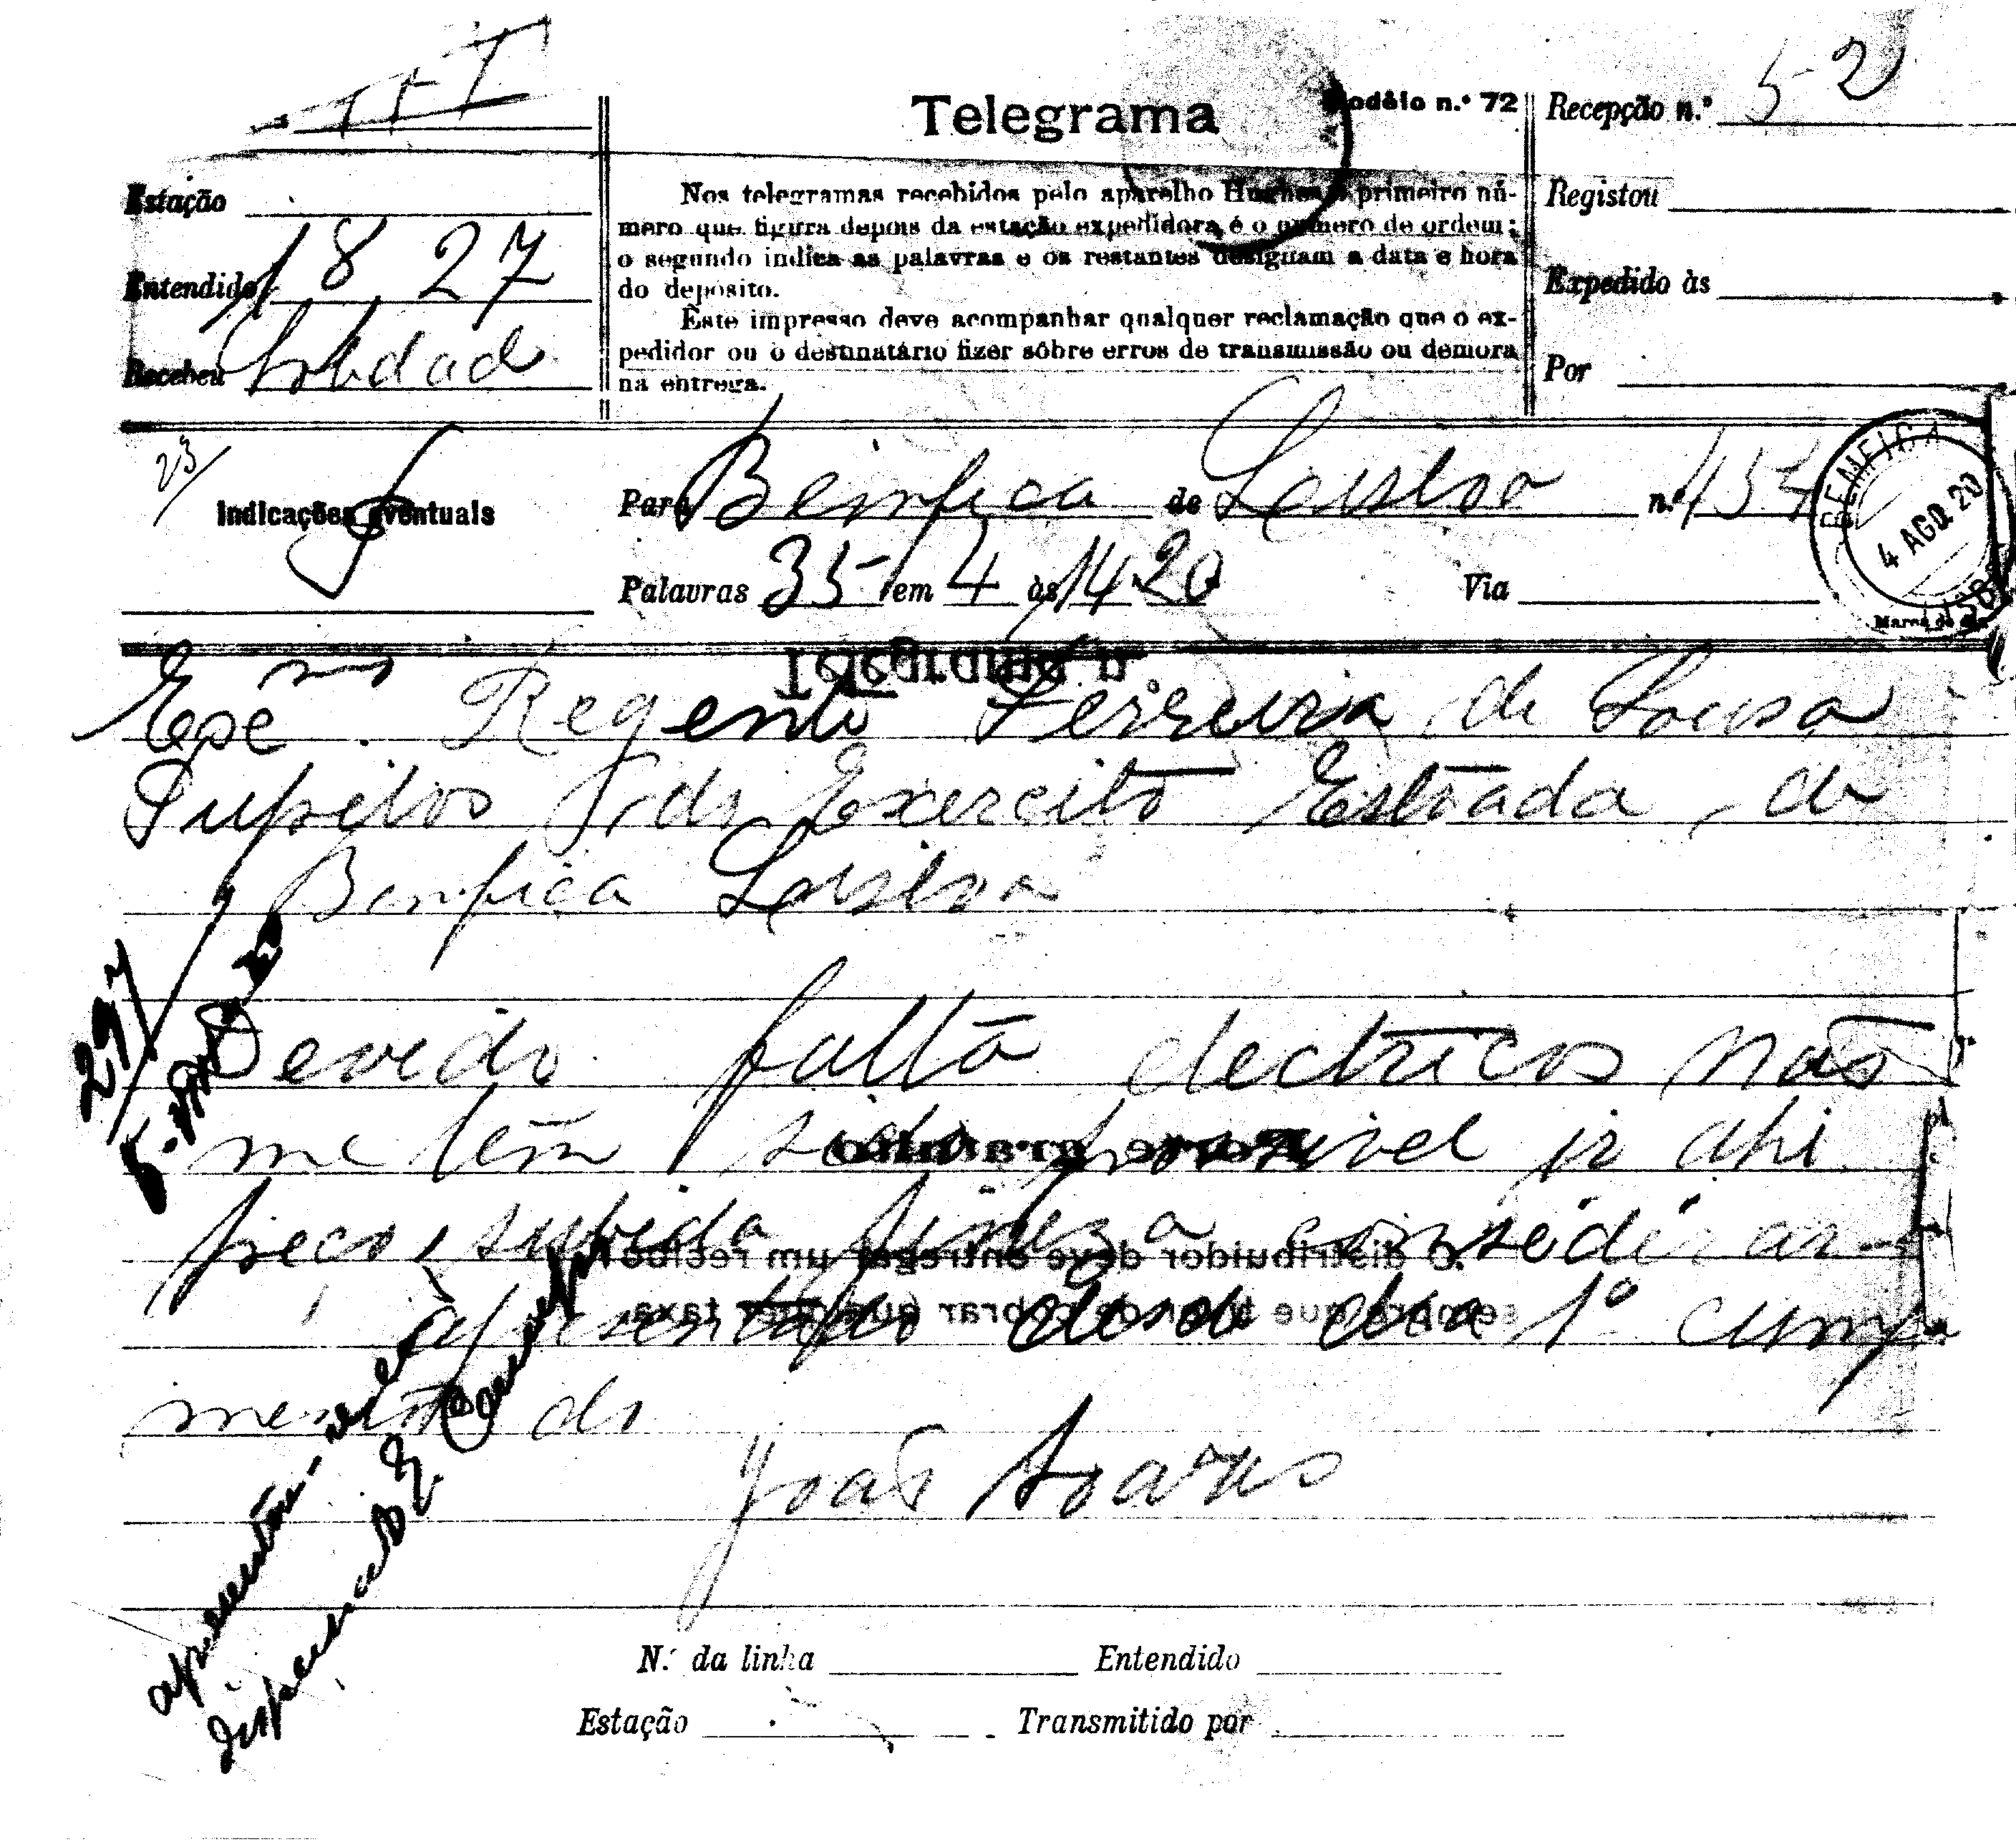 Telegrama
Modêlo n.º 72
Recepção n.º 52
Estação
Entendido 18,27
Recebeu
Nos telegramas recebidos pelo aparelho Hughes o primeiro nú-
mero que figura depois da estação expedidora é o número de ordem;
o segundo indica as palavras e os restantes designam a data e hora
do depósito.
Êste impresso deve acompanhar qualquer reclamação que o ex-
pedidor ou o destinatário fizer sôbre erros de transmissão ou demora
na entrega.
Registou
Expedido às
Por
23
Indicações eventuais
Para Bemfica de Lisboa n.º
Palavras 35 em 4 às 14.20 Via
BEMFICA
4 AGO. 20
LISBOA
Marca do dia
Exmo. Regente Ferreira de Sousa
Pupilos do Exercito Estrada de
Bemfica Lisboa
Devido falta electricos não
me têm sido possivel ir ahi
peço subida fineza considerar-
apresentado desde dia 1º cump
mento do
João Soares
297
N.º da linha Entendido
Estação Transmitido por